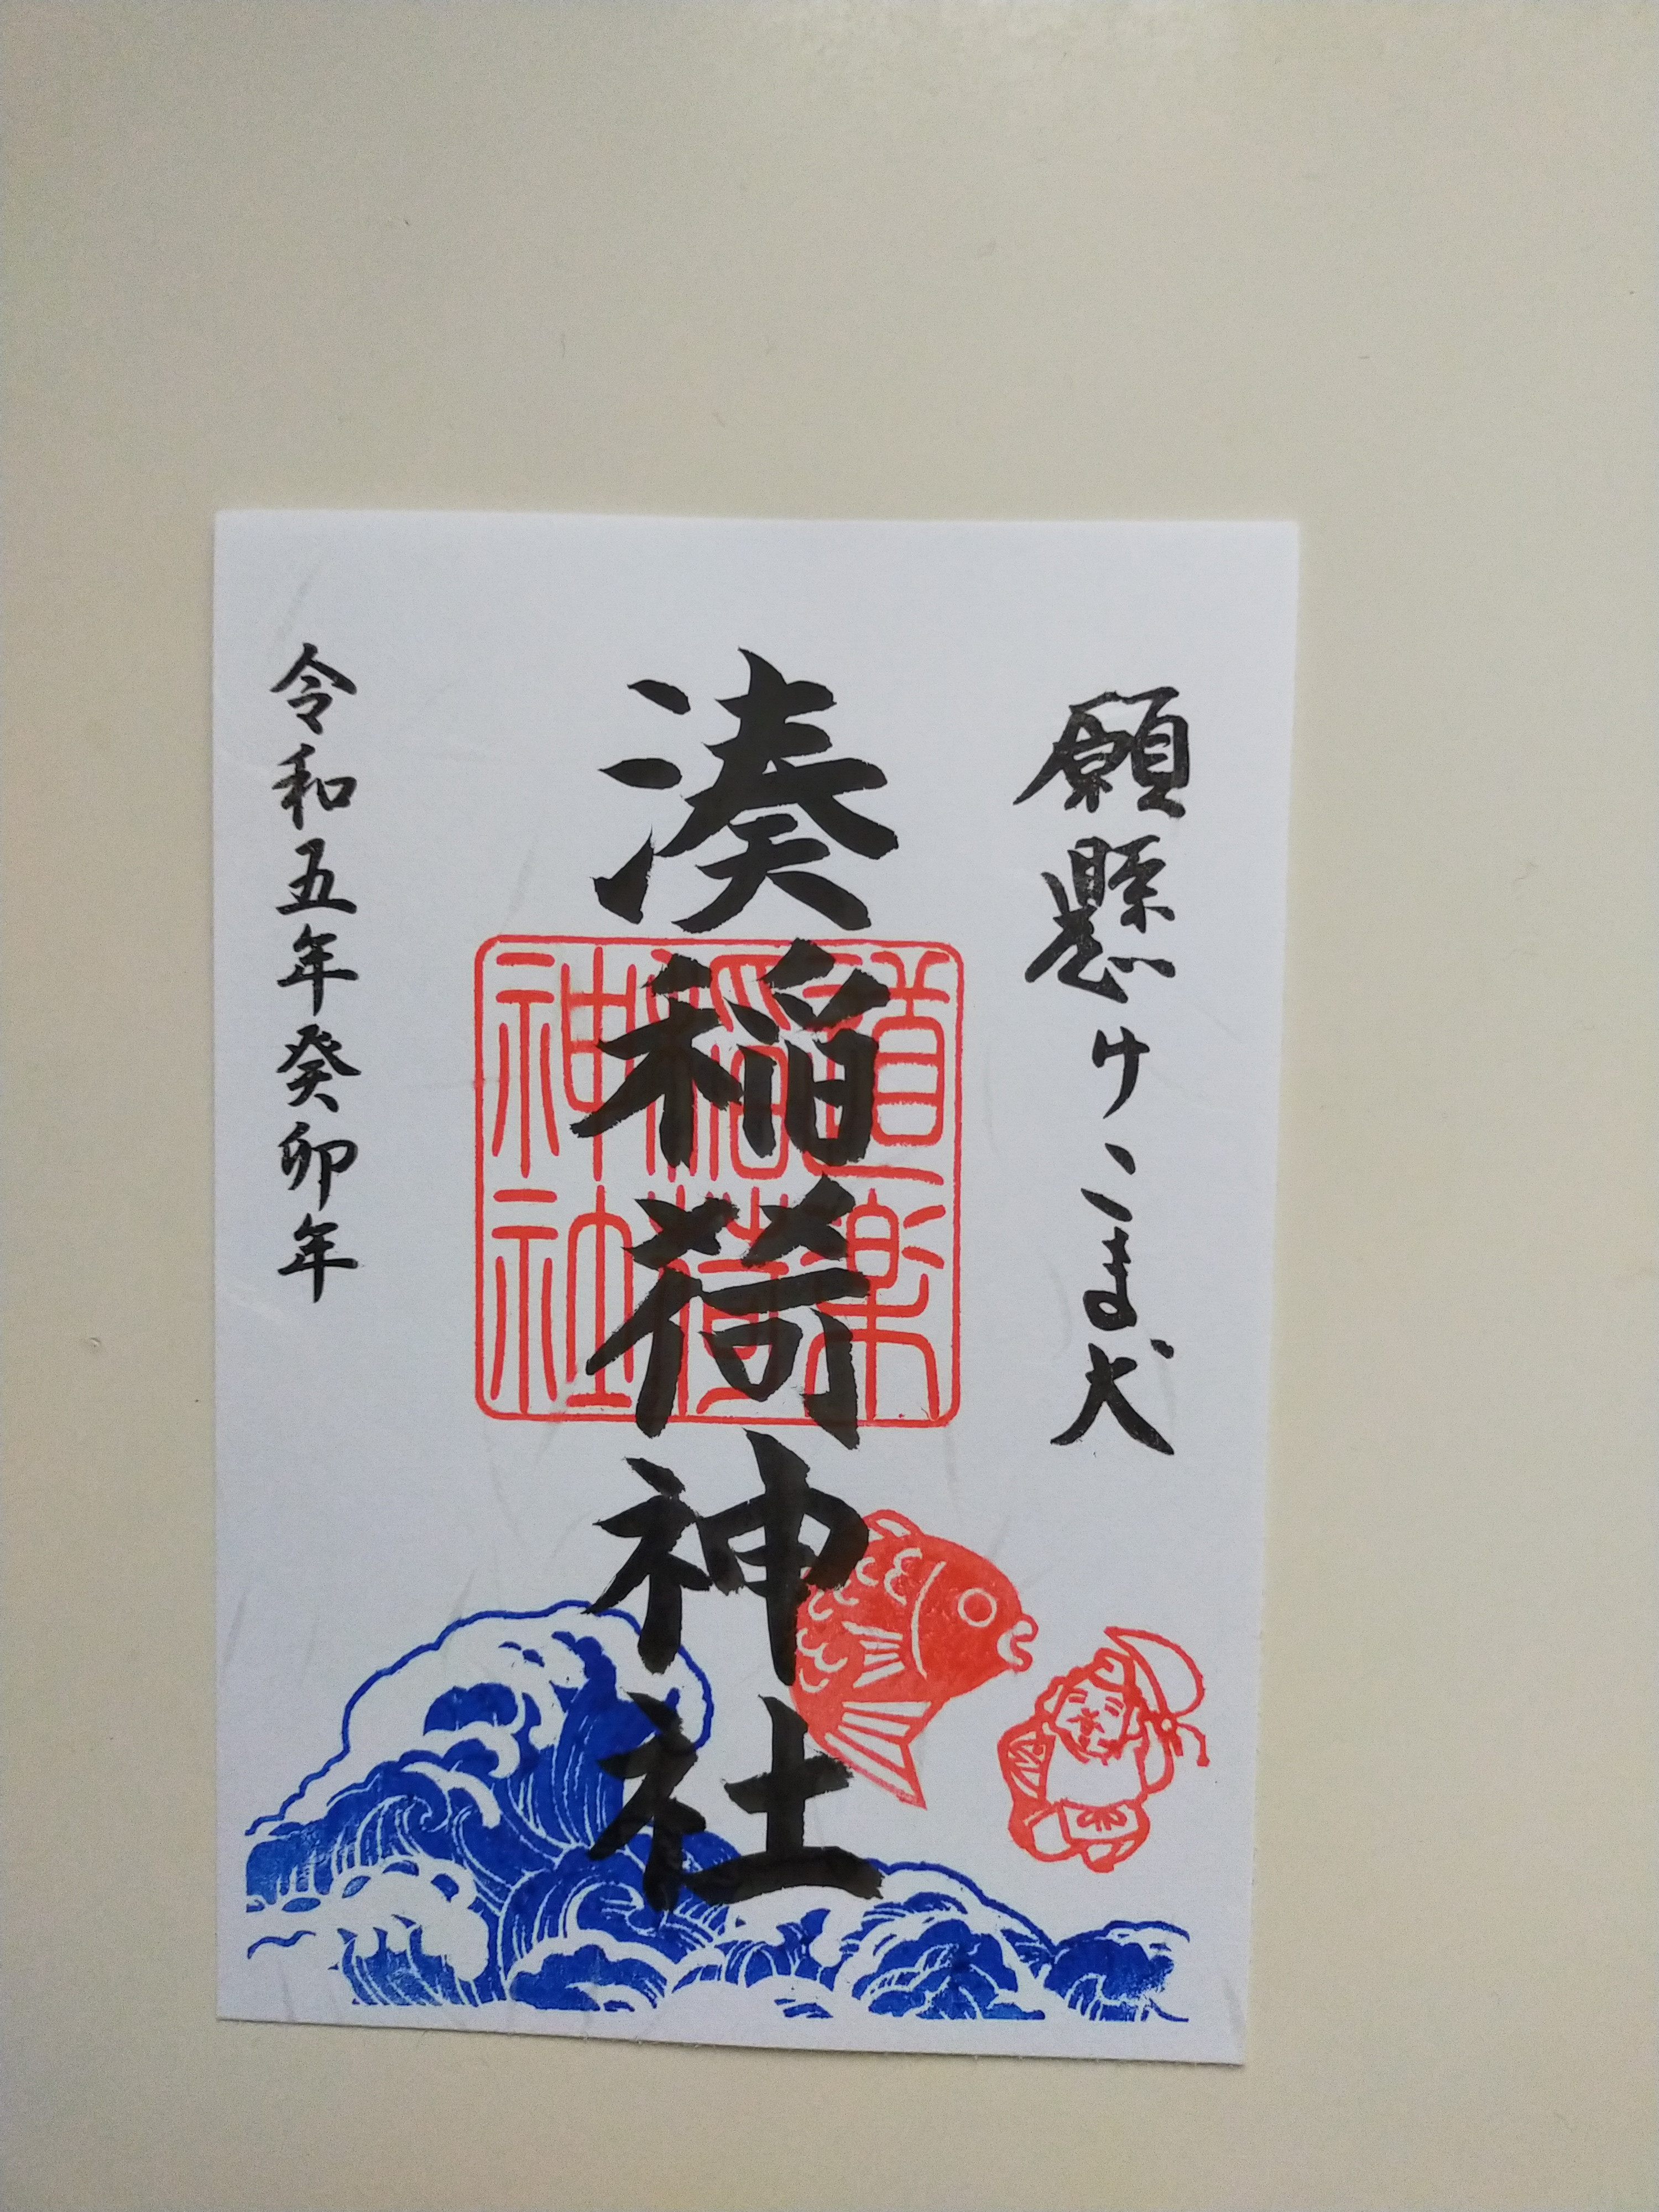 願懸けこま犬
湊稲荷神社
道楽
稲荷
神社
令和五年癸卯年